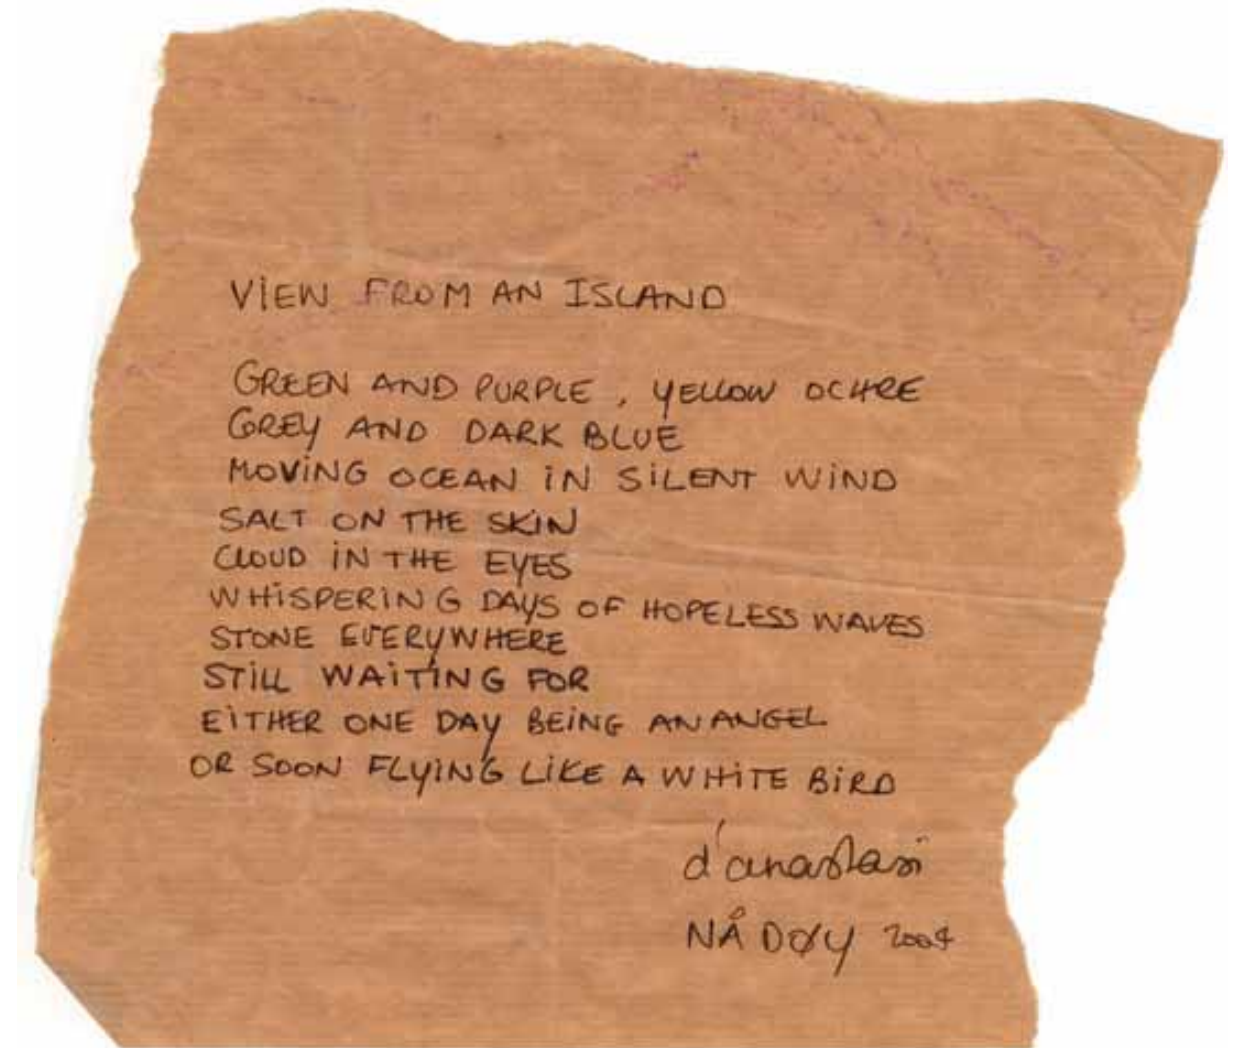 VIEW FROM AN ISLAND
GREEN AND PURPLE, YELLOW OCHRE
GREY AND DARK BLUE
MOVING OCEAN IN SILENT WIND
SALT ON THE SKIN
CLOUD IN THE EYES
WHISPERING DAYS OF HOPELESS WAVES
STONE EVERYWHERE
STILL WAITING FOR
EITHER ONE DAY BEING AN ANGEL
OR SOON FLYING LIKE A WHITE BIRD
d'anastasi
NÅDØY 2004